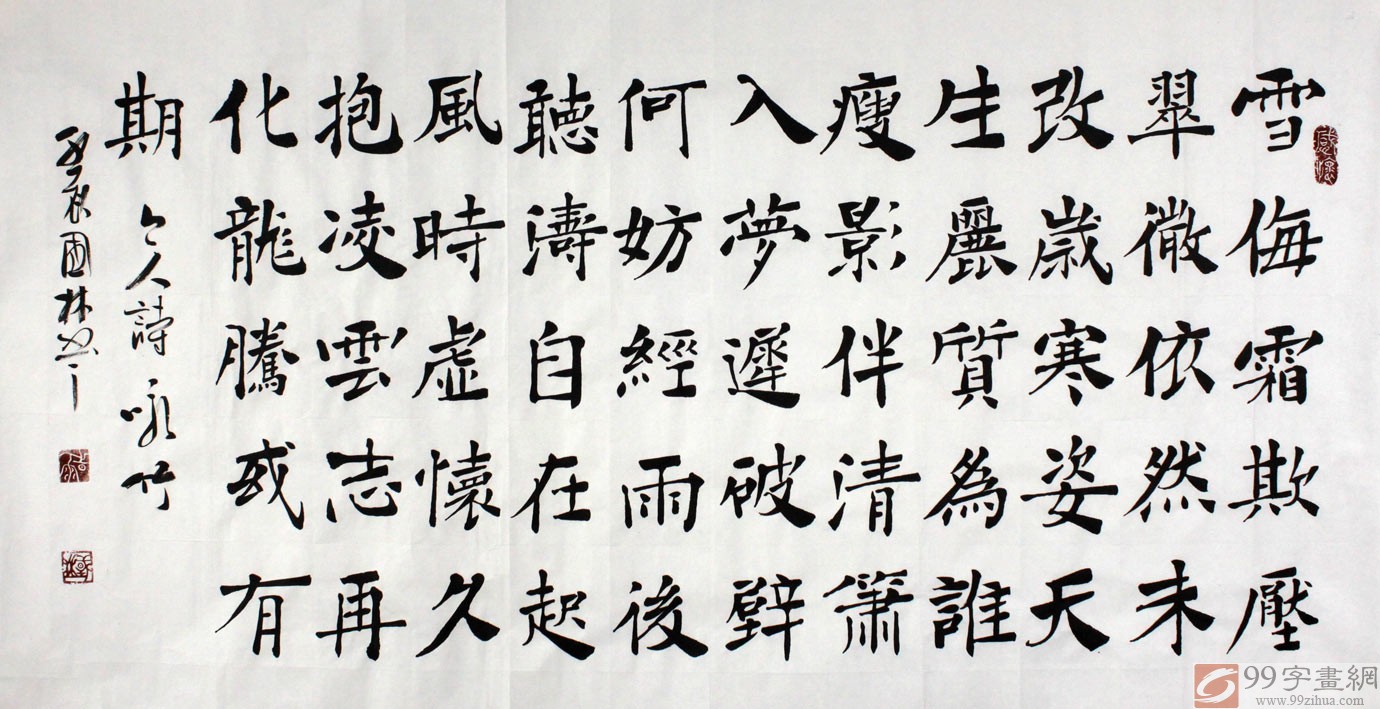 感懷
雪侮霜欺壓
翠微依然未
改歲寒姿天
生麗質為誰
瘦影伴清簫
入夢遲破壁
何妨經雨後
聽濤自在起
風時虛懷久
抱凌雲志再
化龍騰或有
期 今人詩詠竹
國林書
99字畫網
www.99zihua.com